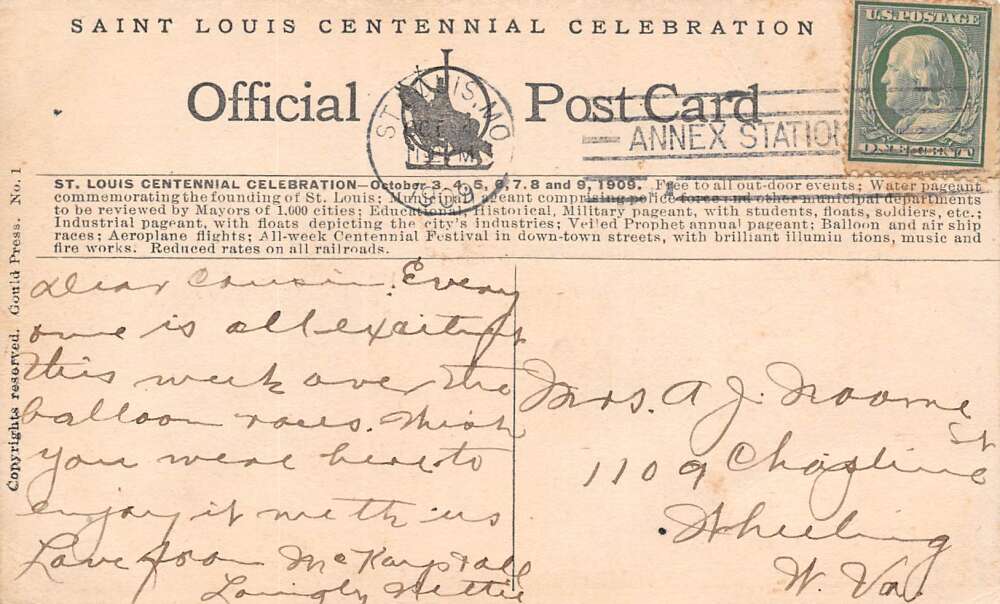 SAINT LOUIS CENTENNIAL CELEBRATION
Official Post Card
U.S. POSTAGE
ONE CENT
ST. LOUIS, MO
1909
ANNEX STATION
ST. LOUIS CENTENNIAL CELEBRATION—October 3, 4, 5, 6, 7, 8 and 9, 1909. Free to all out-door events; Water pageant
commemorating the founding of St. Louis; Municipal pageant comprising police force and other municipal departments
to be reviewed by Mayors of 1,000 cities; Educational, Historical, Military pageant, with students, floats, soldiers, etc.;
Industrial pageant, with floats depicting the city's industries; Veiled Prophet annual pageant; Balloon and air ship
races; Aeroplane flights; All-week Centennial Festival in down-town streets, with brilliant illumin tions, music and
fire works. Reduced rates on all railroads.
Copyrights reserved. Gould Press. No. 1
Dear Cousin: Every
one is all
this week over the
balloon races. Wish
you were here to
enjoy it with us
Love from
Nettie
Mrs. A. J.
1109 Chapline St
Wheeling
W. Va.